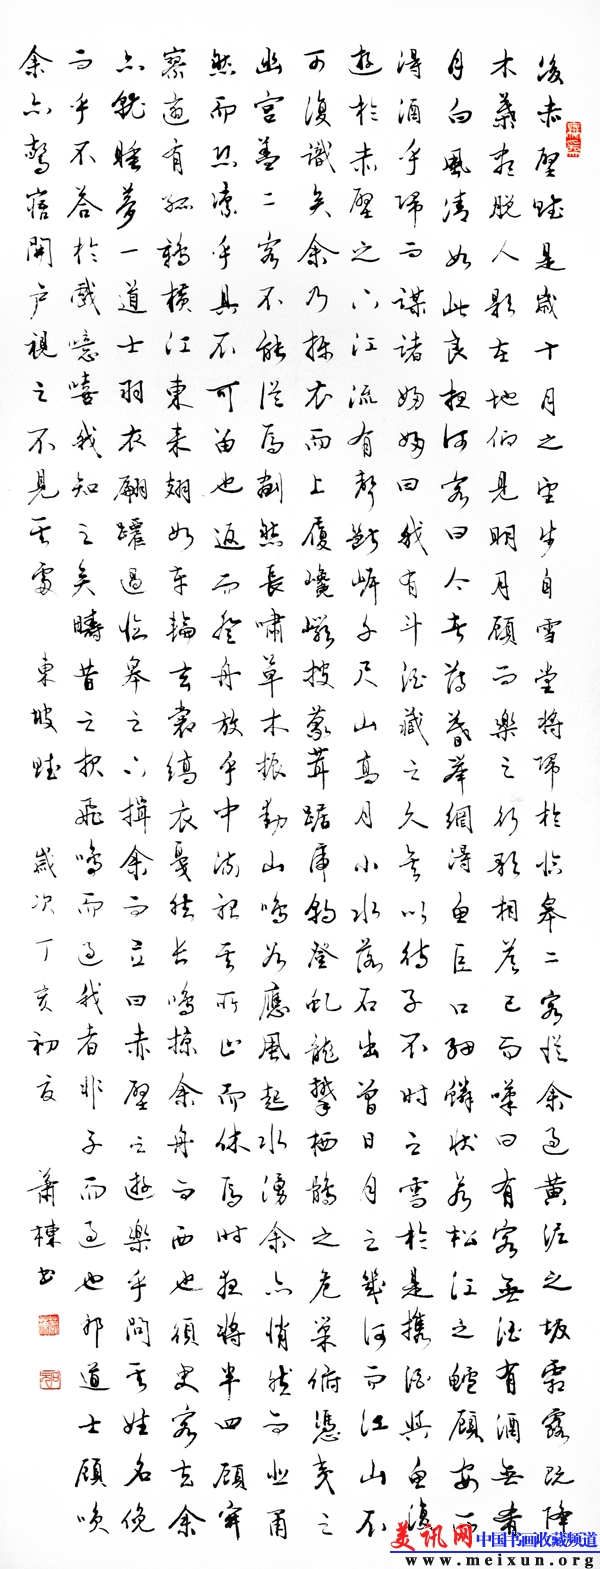 後赤壁賦是歲十月之望步自雪堂將歸於臨皋二客從余過黃泥之坂霜露既降
木葉盡脫人影在地仰見明月顧而樂之行歌相答已而嘆曰有客無酒有酒無肴
月白風清如此良夜何客曰今者薄暮舉網得魚巨口細鱗狀若松江之鱸顧安所
得酒乎歸而謀諸婦婦曰我有斗酒藏之久矣以待子不時之需於是攜酒與魚復
遊於赤壁之下江流有聲斷岸千尺山高月小水落石出曾日月之幾何而江山不
可復識矣余乃攝衣而上履巉巖披蒙茸踞虎豹登虬龍攀栖鶻之危巢俯憑夷之
幽宮蓋二客不能從焉劃然長嘯草木振動山鳴谷應風起水湧余亦悄然而悲肅
然而恐凜乎其不可留也返而登舟放乎中流聽其所止而休焉時夜將半四顧寂
寥適有孤鶴橫江東來翅如車輪玄裳縞衣戛然長鳴掠余舟而西也須臾客去余
亦就睡夢一道士羽衣翩躚過臨皋之下揖余而言曰赤壁之遊樂乎問其姓名俛
而乎不答於戲噫嘻我知之矣疇昔之夜飛鳴而過我者非子而過也耶道士顧
余亦驚寤開戶視之不見其處 東坡賦 歲次丁亥初夏 蕭棟書
美讯网 中国书画收藏频道
www.meixun.org